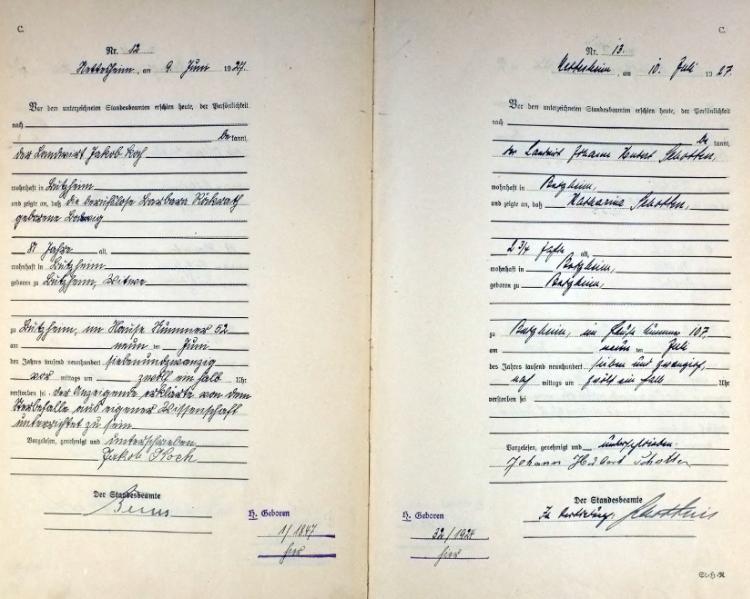 C.
Nr. 12
Nettesheim, am 9. Juni 1927.
Vor dem unterzeichneten Standesbeamten erschien heute, der Persönlichkeit
nach
be kannt,
der Landwirt Jakob Koch
wohnhaft in Butzheim
und zeigte an, daß die berufslose Barbara
geborene
81 Jahre alt,
wohnhaft in Butzheim
geboren zu Butzheim, Witwe
zu Butzheim, im Hause Nummer 52
am neun ten Juni
des Jahres tausend neunhundert siebenundzwanzig
vor mittags um zwölf ein halb Uhr
verstorben sei. Der Anzeigende erklärte von dem
Sterbefalle aus eigener Wissenschaft
unterrichtet zu sein.
Vorgelesen, genehmigt und unterschrieben
Jakob Koch
Der Standesbeamte
H. Geboren
1/1847
hier
C.
Nr. 13.
Nettesheim, am 10. Juli 1927.
Vor dem unterzeichneten Standesbeamten erschien heute, der Persönlichkeit
nach
be kannt,
der Landwirt Johann Hubert Schotten,
wohnhaft in Butzheim,
und zeigte an, daß Katharina Schotten,
2 3/4 Jahre alt,
wohnhaft in Butzheim,
geboren zu Butzheim,
zu Butzheim, im Hause Nummer 107,
am neun ten Juli
des Jahres tausend neunhundert sieben und zwanzig,
nach mittags um zwölf ein halb Uhr
verstorben sei
Vorgelesen, genehmigt und unterschrieben.
Johann Hubert Schotten
Der Standesbeamte
In Vertretung:
H. Geboren
32/1924
hier